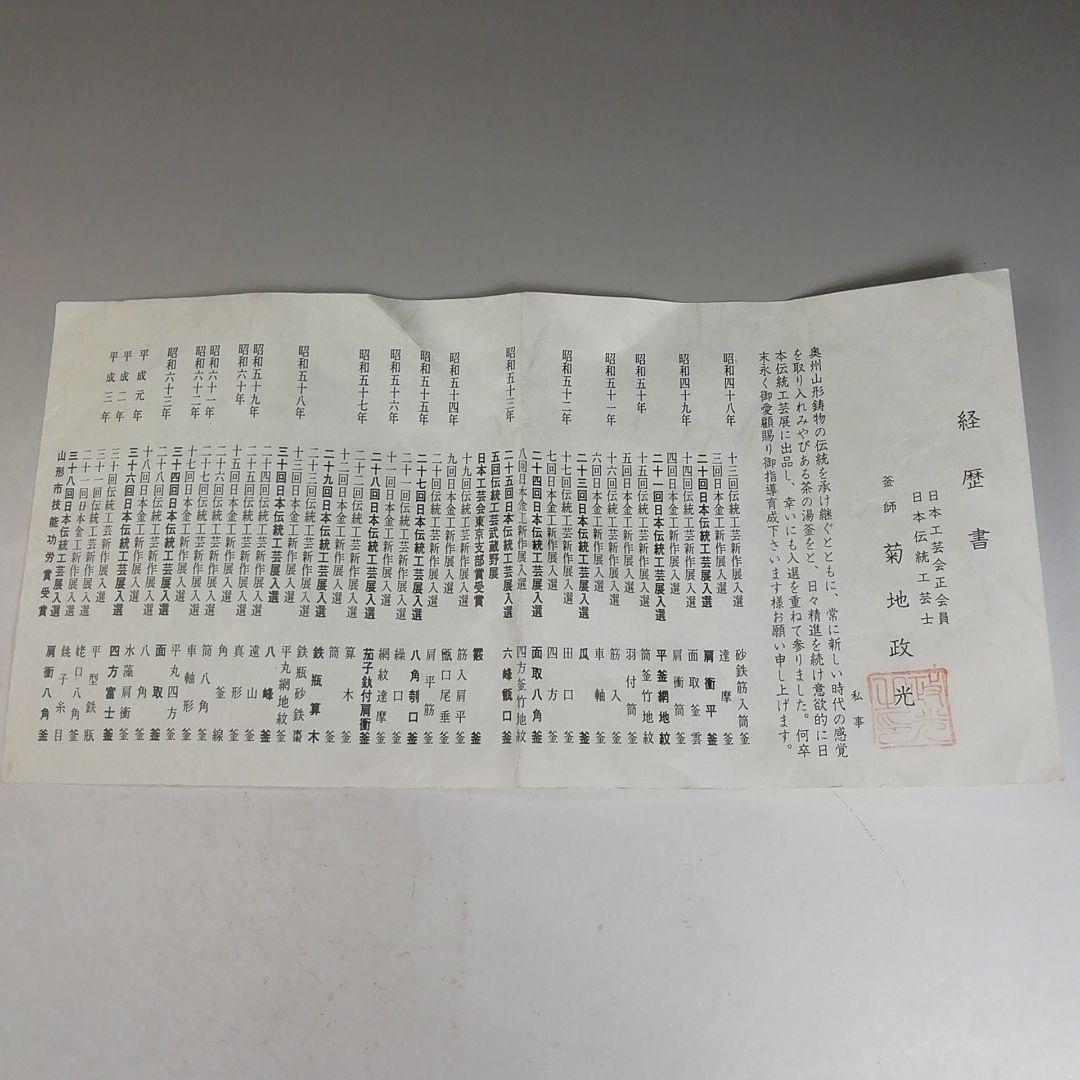 経歴書
日本工芸会正会員
日本伝統工芸士
釜師 菊地政光
私事
奥州山形鋳物の伝統を承け継ぐとともに、常に新しい時代の感覚
を取り入れみやびある茶の湯釜をと、日々精進を続け意欲的に日
本伝統工芸展に出品し、幸いにも入選を重ねて参りました。何卒
末永く御愛顧賜り御指導育成下さいます様お願い申し上げます。
昭和四十八年 十三回伝統工芸新作展入選 砂鉄筋入筒釜
三回日本金工新作展入選 達摩釜
二十回日本伝統工芸展入選 肩衝平釜
昭和四十九年 十四回伝統工芸新作展入選 面取釜雲
四回日本金工新作展入選 肩衝筒釜
二十一回日本伝統工芸展入選 平釜網地紋
昭和五十年 十五回伝統工芸新作展入選 筒釜竹地紋
五回日本金工新作展入選 羽付筒釜
昭和五十一年 十六回伝統工芸新作展入選 筋入釜
六回日本金工新作展入選 車軸釜
二十三回日本伝統工芸展入選 瓜釜
昭和五十二年 十七回伝統工芸新作展入選 田口釜
七回日本金工新作展入選 四方釜
二十四回日本伝統工芸展入選 面取八角釜
昭和五十三年 八回日本金工新作展入選 四方釜竹地紋
二十五回日本伝統工芸展入選 六峰甑口釜
五回伝統工芸武蔵野展
日本工芸会東京支部賞受賞 霰釜
昭和五十四年 十九回伝統工芸新作展入選 筋入肩平釜
九回日本金工新作展入選 甑口尾垂釜
昭和五十五年 二十回伝統工芸新作展入選 肩平筋釜
二十七回日本伝統工芸展入選 八角刎口釜
昭和五十六年 二十一回伝統工芸新作展入選 繰口釜
十一回日本金工新作展入選 網紋達摩釜
二十八回日本伝統工芸展入選 茄子鈥付肩衝釜
昭和五十七年 二十二回伝統工芸新作展入選 算木釜
十二回日本金工新作展入選 筒釜
二十九回日本伝統工芸展入選 鉄瓶算木
昭和五十八年 二十三回伝統工芸新作展入選 鉄瓶砂鉄棗
十三回日本金工新作展入選 平丸網地紋釜
三十回日本伝統工芸展入選 八峰釜
昭和五十九年 二十四回伝統工芸新作展入選 遠山釜
昭和六十年 二十五回伝統工芸新作展入選 真形釜
十五回日本金工新作展入選 角釜線
昭和六十一年 二十六回伝統工芸新作展入選 筒八角釜
昭和六十二年 二十七回伝統工芸新作展入選 車軸形釜
十七回日本金工新作展入選 平丸四方釜
三十四回日本伝統工芸展入選 面取釜
昭和六十三年 二十八回伝統工芸新作展入選 八角釜
十八回日本金工新作展入選 水藻肩衝釜
平成元年 三十六回日本伝統工芸展入選 四方富士釜
平成二年 三十回伝統工芸新作展入選 平型鉄瓶
平成三年 三十一回伝統工芸新作展入選 姥口八角釜
二十一回日本金工新作展入選 銚子糸目
三十八回日本伝統工芸展入選 肩衝八角釜
山形市技能功労賞受賞